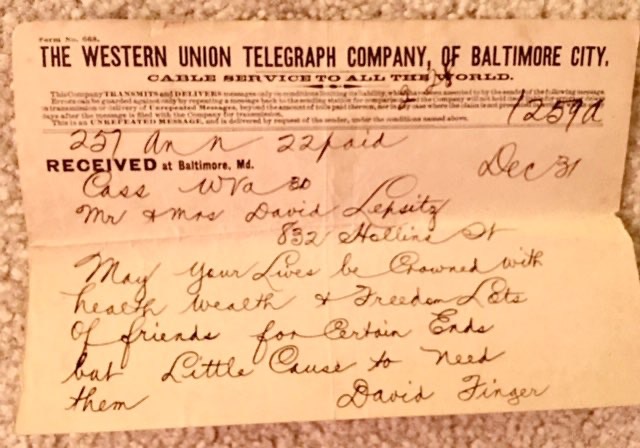 Form No. 668.
THE WESTERN UNION TELEGRAPH COMPANY, OF BALTIMORE CITY.
CABLE SERVICE TO ALL THE WORLD.
This Company TRANSMITS and DELIVERS messages only on conditions limiting its liability, which have been assented to by the sender of the following message
Errors can be guarded against only by repeating a message back to the sending station for comparison, and the Company will not hold itself liable for errors or delays
in transmission or delivery of Unrepeated Messages, beyond the amount of tolls paid thereon, nor in any case where the claim is not presented in writing within
days after the message is filed with the Company for transmission.
This is an UNREPEATED MESSAGE, and is delivered by request of the sender, under the conditions named above.
1259a
257 Ann 22 paid
RECEIVED at Baltimore, Md.
Dec 31
Cass WVa 30
Mr & Mrs David Lepsitz
832 Hollins St
May your Lives be Crowned with
health wealth & Freedom Lots
of friends for Certain Ends
but Little Cause to need
them David Finger